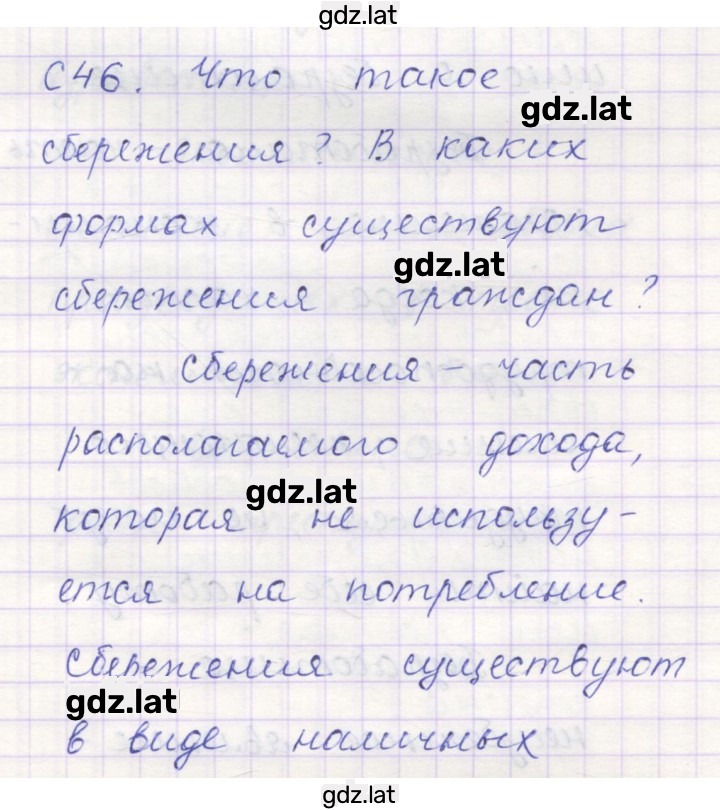 gdz.lat
С46. Что такое
gdz.lat
сбережения? В каких
формах существуют
gdz.lat
сбережения граждан?
Сбережения – часть
располагаемого дохода,
gdz.lat
которая не использу-
ется на потребление.
Сбережения существуют
gdz.lat
в виде наличных
gdz.lat